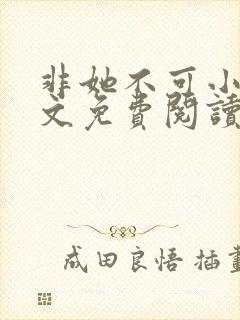 非她不可小
文免費閱讀
成田良悟 插畫